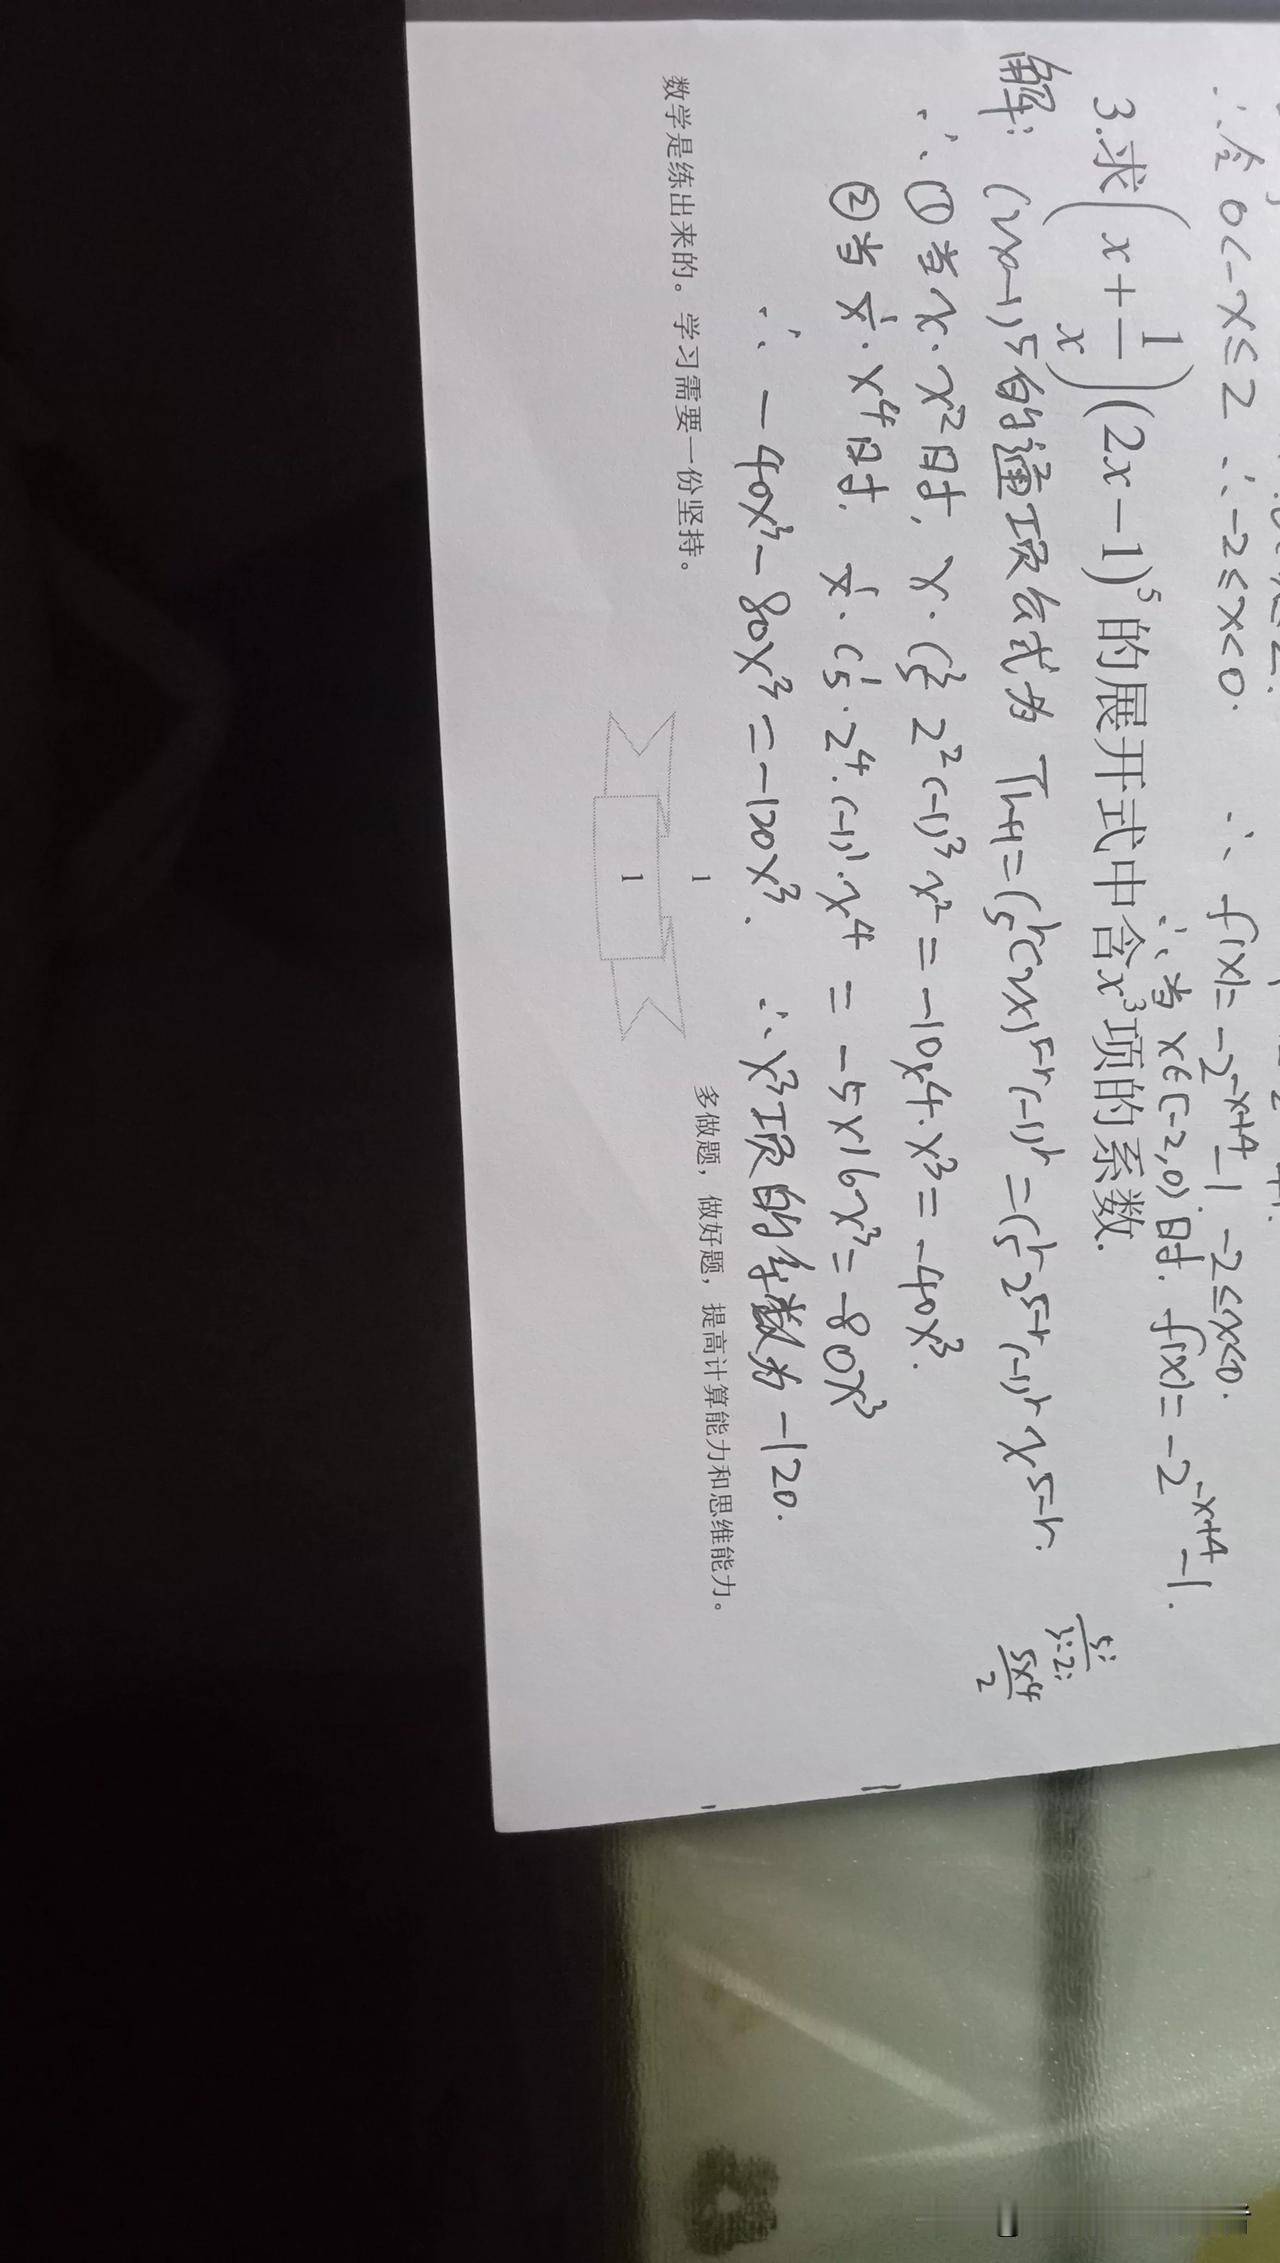 ∴令 0<-x≤2 ∴-2≤x<0. ∴ f(x)=-2^{-x+4}-1 -2≤x<0.
∴当 x∈[-2,0)时. f(x)=-2^{-x+4}-1.
3.求(x+\frac{1}{x})(2x-1)^5的展开式中含x^3项的系数.
解: (2x-1)^5的通项公式为 T_{r+1}=C_5^r(2x)^{5-r}(-1)^r=C_5^r 2^{5-r}(-1)^r x^{5-r}.
\frac{5!}{3!2!}
\frac{5×4}{2}
∴①当x·x^2时, x·C_5^3 2^2(-1)^3x^2=-10×4·x^3=-40x^3.
②当\frac{1}{x}·x^4时. \frac{1}{x}·C_5^1·2^4·(-1)^1·x^4=-5×16x^3=-80x^3
∴ -40x^3-80x^3=-120x^3. ∴x^3项的系数为-120.
数学是练出来的。学习需要一份坚持。
1
多做题，做好题，提高计算能力和思维能力。
1